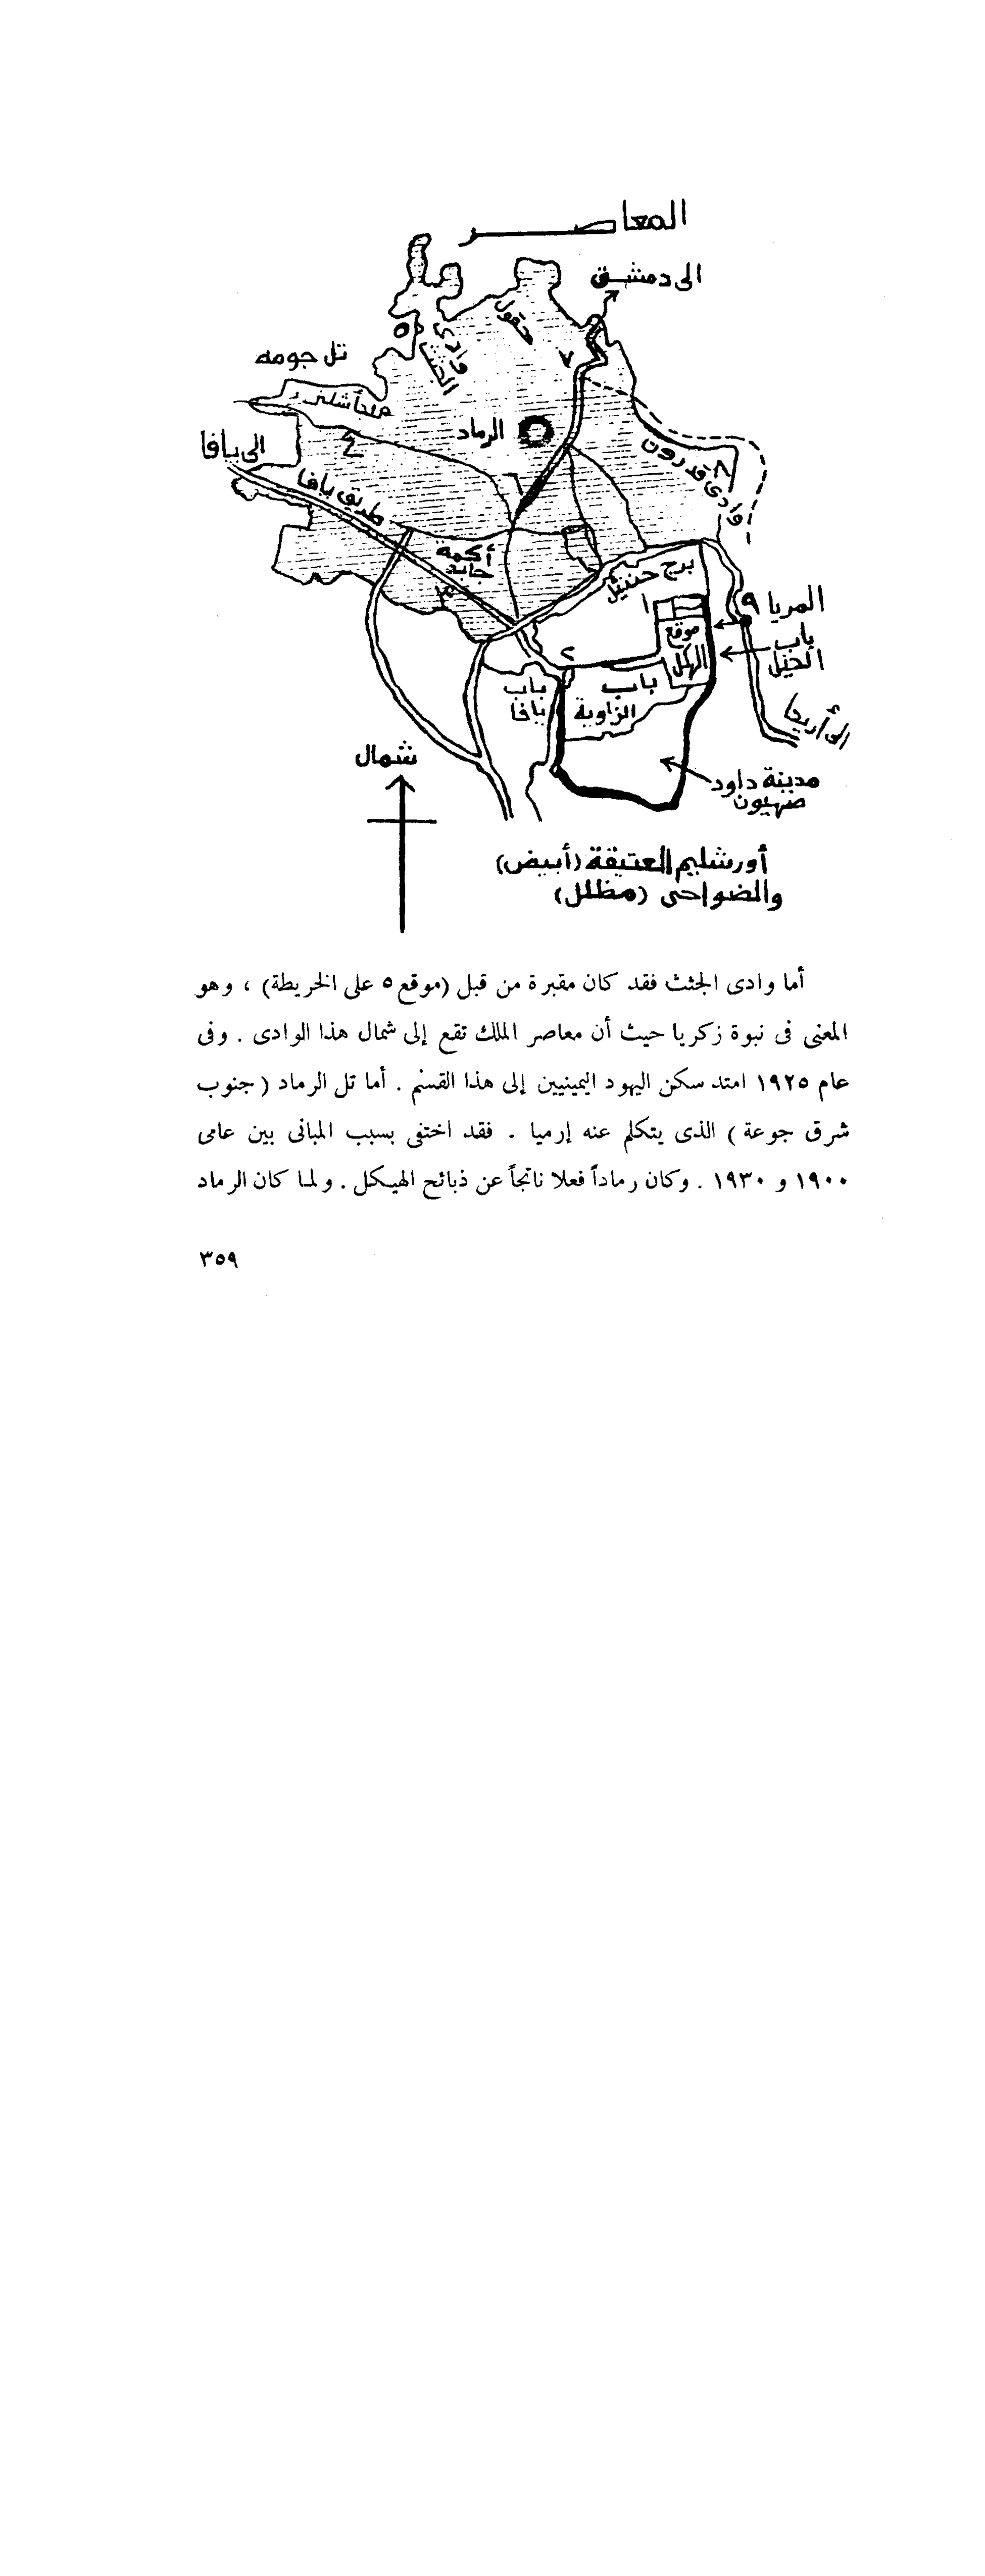 المعاصر
الى دمشق
حقول
وادى
الجثث
٥
٧
تل جومه
الرماد
٤
الى يافا
طريق يافا
وادى قدرون
٨
٦
أكمة
جارب
٣
برج حننئيل
١
موقع
الهكل
المريا ٩
باب
الخيل
٢
باب
يافا
باب
الزاوية
الى أريحا
شمال
مدينة داود
صهيون
أورشليم العتيقة (أبيض)
والضواحى (مظلل)
أما وادى الجثث فقد كان مقبرة من قبل (موقع ٥ على الخريطة) ، وهو
المعنى فى نبوة زكريا حيث أن معاصر الملك تقع إلى شمال هذا الوادى . وفى
عام ١٩٢٥ امتد سكن اليهود اليمينيين إلى هذا القسم . أما تل الرماد ( جنوب
شرق جوعة ) الذى يتكلم عنه إرميا . فقد اختفى بسبب المبانى بين عامى
١٩٠٠ و ١٩٣٠ . وكان رماداً فعلا ناتجاً عن ذبائح الهيكل . ولما كان الرماد
٣٥٩